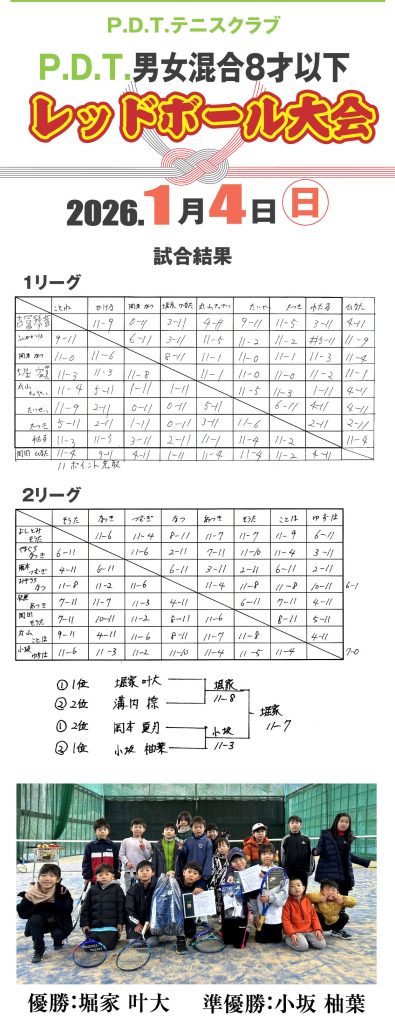 P.D.T.テニスクラブ
P.D.T.男女混合8才以下
レッドボール大会
2026.1月4日(日)
試合結果
1リーグ
11-9 0-11 3-11 4-11 9-11 11-5 3-11 4-11
9-11 6-11 3-11 11-5 11-2 11-2 11-9
岡本 なつ 11-0 11-6 8-11 11-1 11-0 11-1 11-3 11-4
11-3 11-3 11-8 11-1 11-0 11-0 11-2 11-1
丸山 11-4 5-11 1-11 1-11 11-5 11-3 1-11 4-11
たいせい 11-9 2-11 0-11 0-11 5-11 6-11 4-11 4-11
5-11 2-11 1-11 0-11 3-11 11-6 2-11 2-11
11-3 11-5 3-11 2-11 11-1 11-4 11-2 11-4
岡田 ひなた 11-4 9-11 4-11 1-11 11-4 11-4 11-2 4-11
11ポイント先取
2リーグ
もうた なつき つむぎ なつ あつき そうた ことは ゆずは
よしとみ もうた 11-6 11-4 8-11 11-7 11-7 11-9 6-11
6-11 11-6 2-11 7-11 11-10 11-4 3-11
つむぎ 4-11 6-11 6-11 3-11 2-11 6-11 2-11
みぞうち なつ 11-8 11-2 11-6 11-4 11-8 11-8 10-11 6-1
あつき 7-11 11-7 11-3 4-11 6-11 7-11 4-11
岡田 そうた 7-11 10-11 11-2 8-11 11-6 8-11 5-11
丸山 ことは 9-11 4-11 11-6 8-11 11-7 11-8 4-11
小坂 ゆずは 11-6 11-3 11-2 11-10 11-4 11-5 11-4 7-0
① 1位 堀家 叶大
堀家
11-8
② 2位 溝内
堀家
11-7
① 2位 岡本 夏月
小坂
11-3
② 1位 小坂 柚葉
優勝:堀家 叶大 準優勝:小坂 柚葉